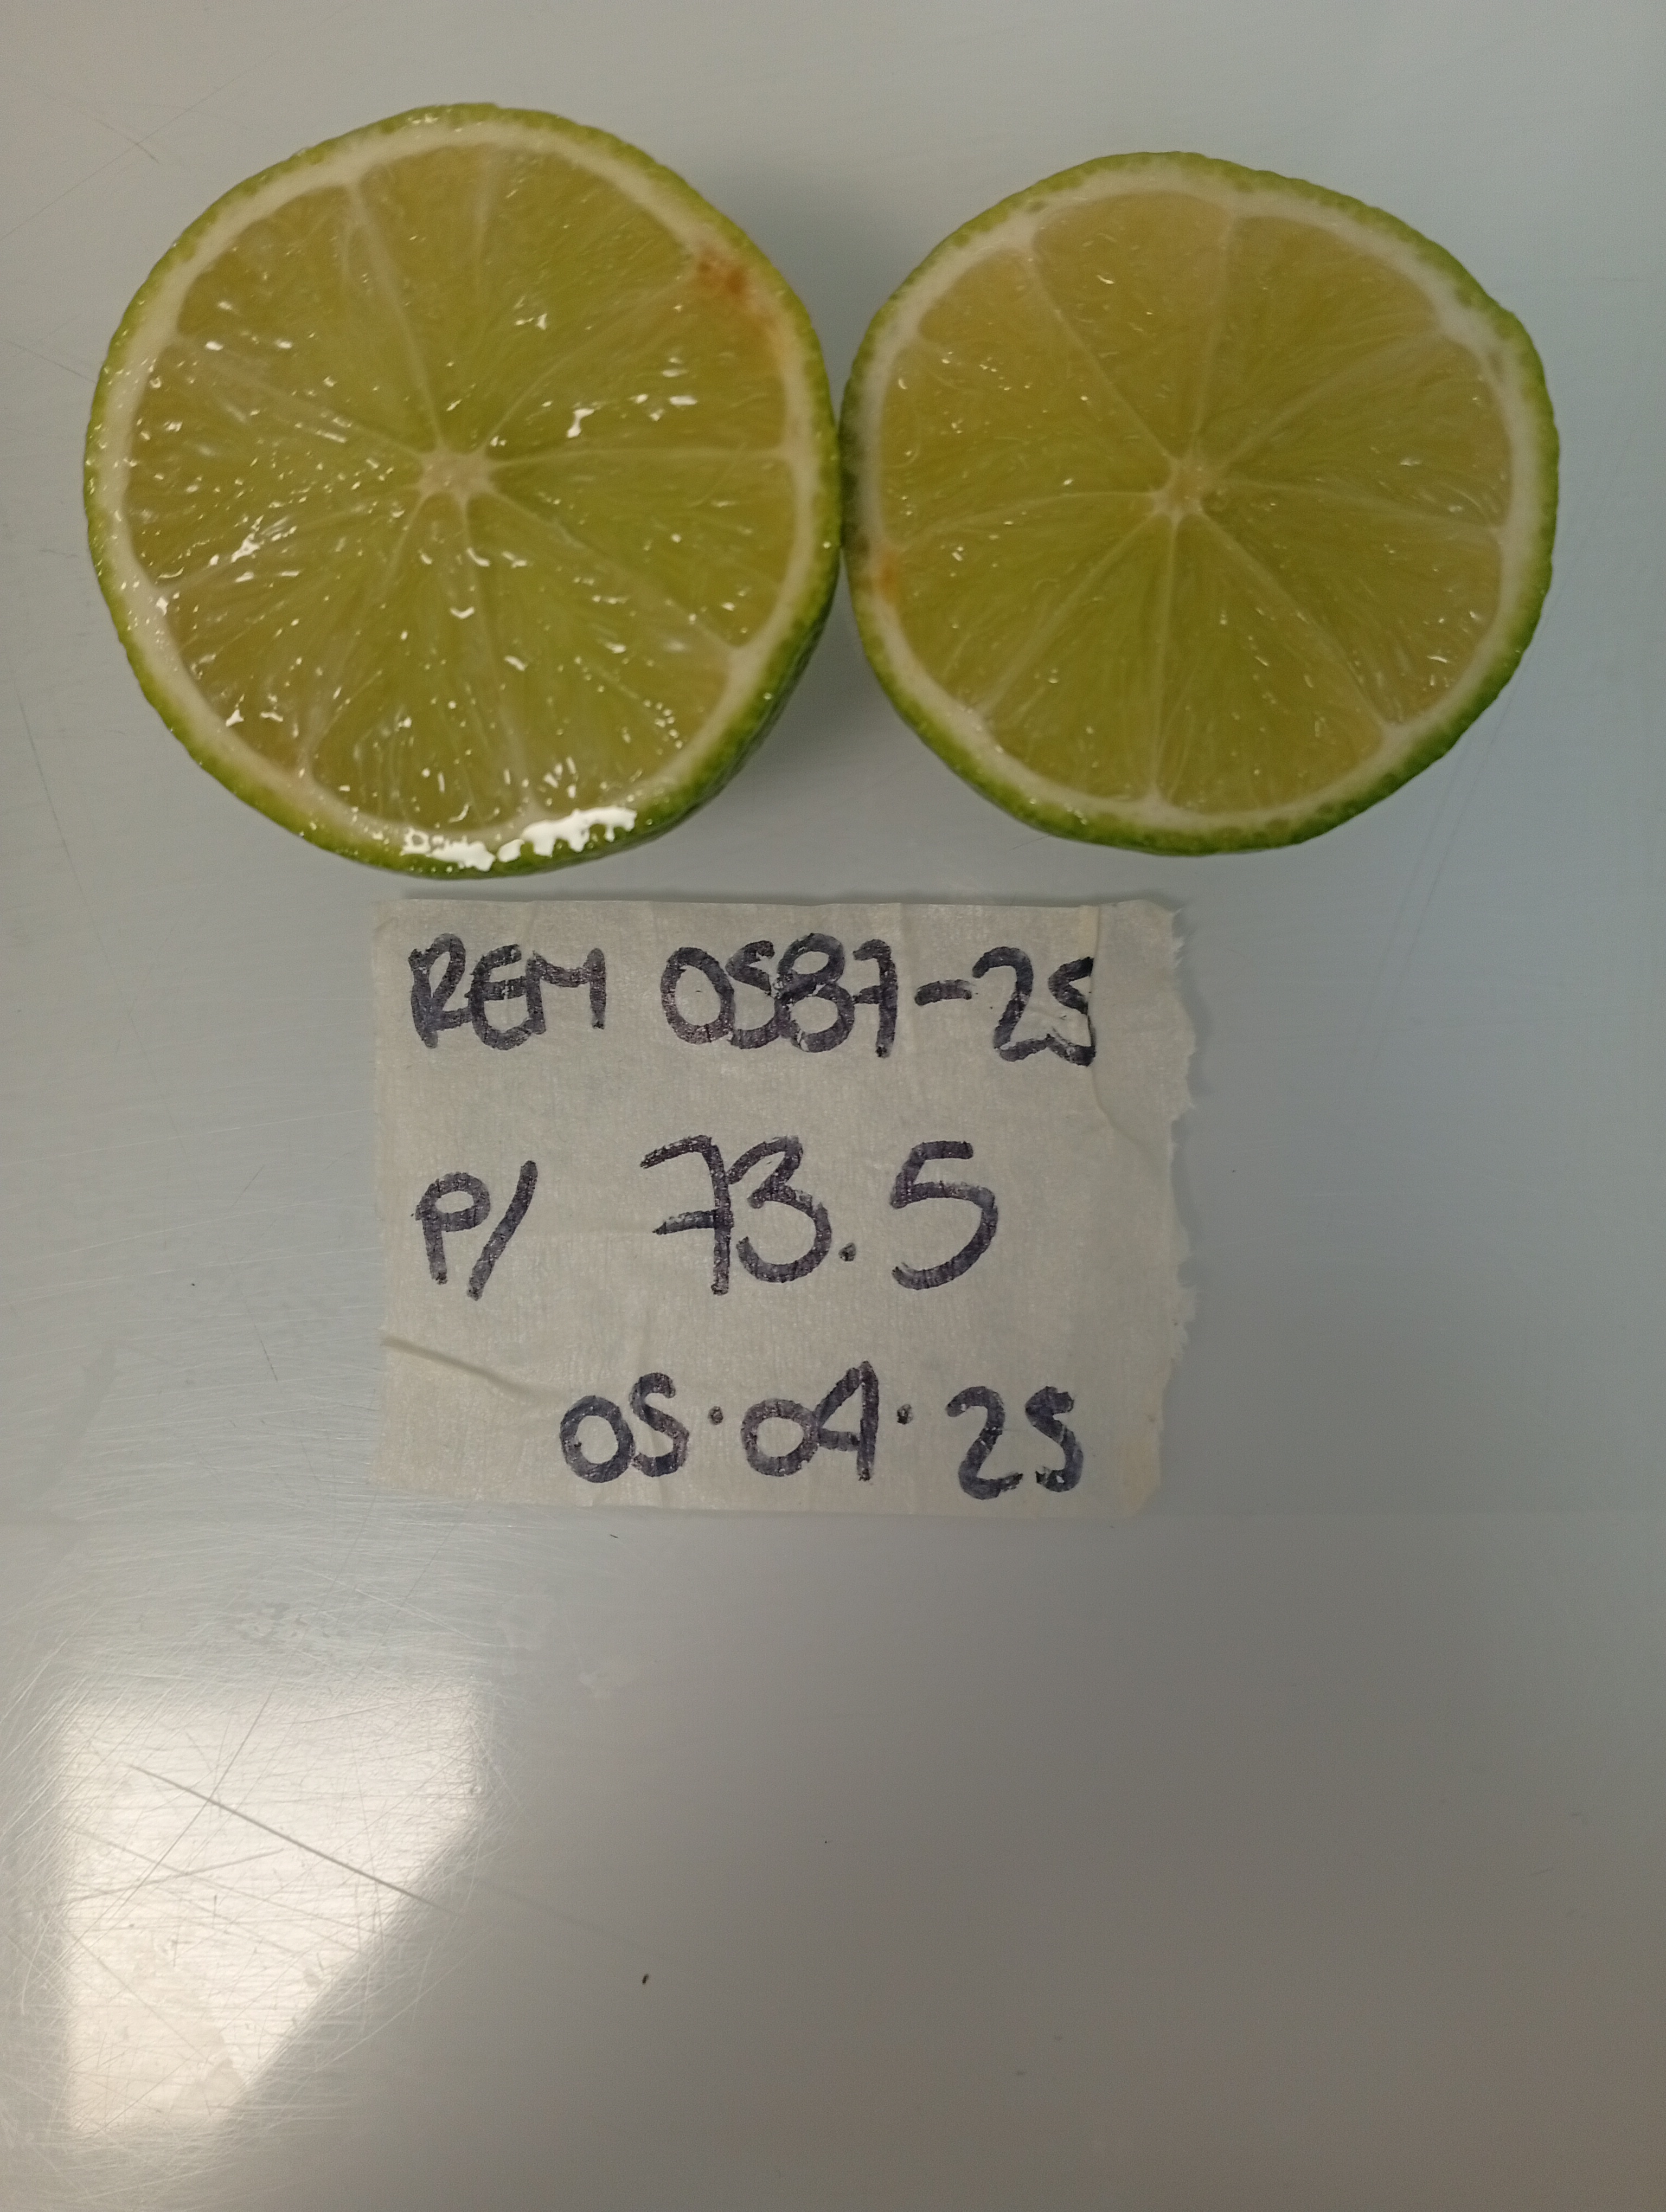 REM 0587-25
P/ 73.5
05.04.25